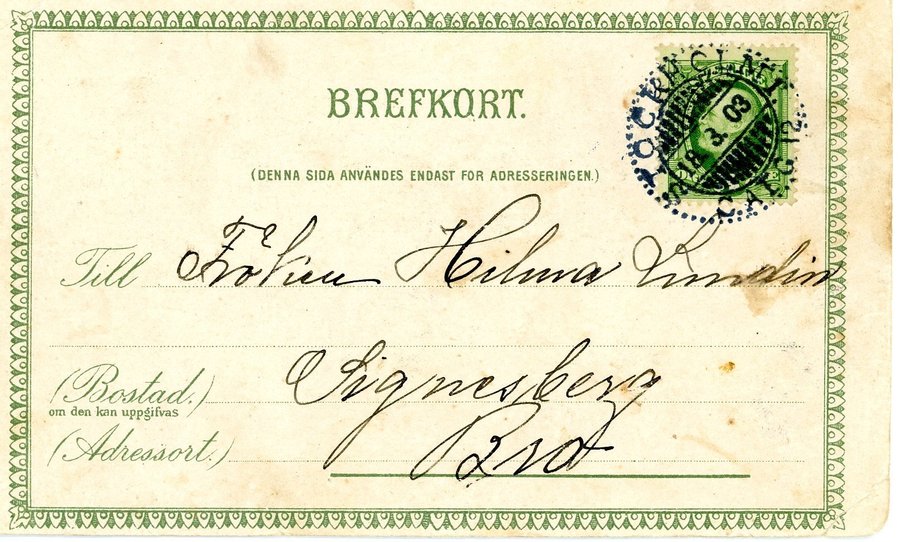 BREFKORT.
(DENNA SIDA ANVÄNDES ENDAST FOR ADRESSERINGEN.)
18 3 03
Till Fröken Hilma Lundin
(Bostad.) Signesberg
om den kan uppgifvas
(Adressort.) Bro